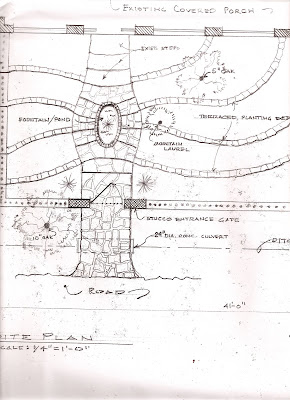 EXISTING COVERED PORCH
EXIST. STEPS
5" OAK
FOUNTAIN/POND
TERRACED PLANTING BED
MOUNTAIN
LAUREL
STUCCO ENTRANCE GATE
10" OAK
24" DIA. CONC. CULVERT
DITC
ROAD
4'-0"
SITE PLAN
SCALE: 1/4"=1'-0"